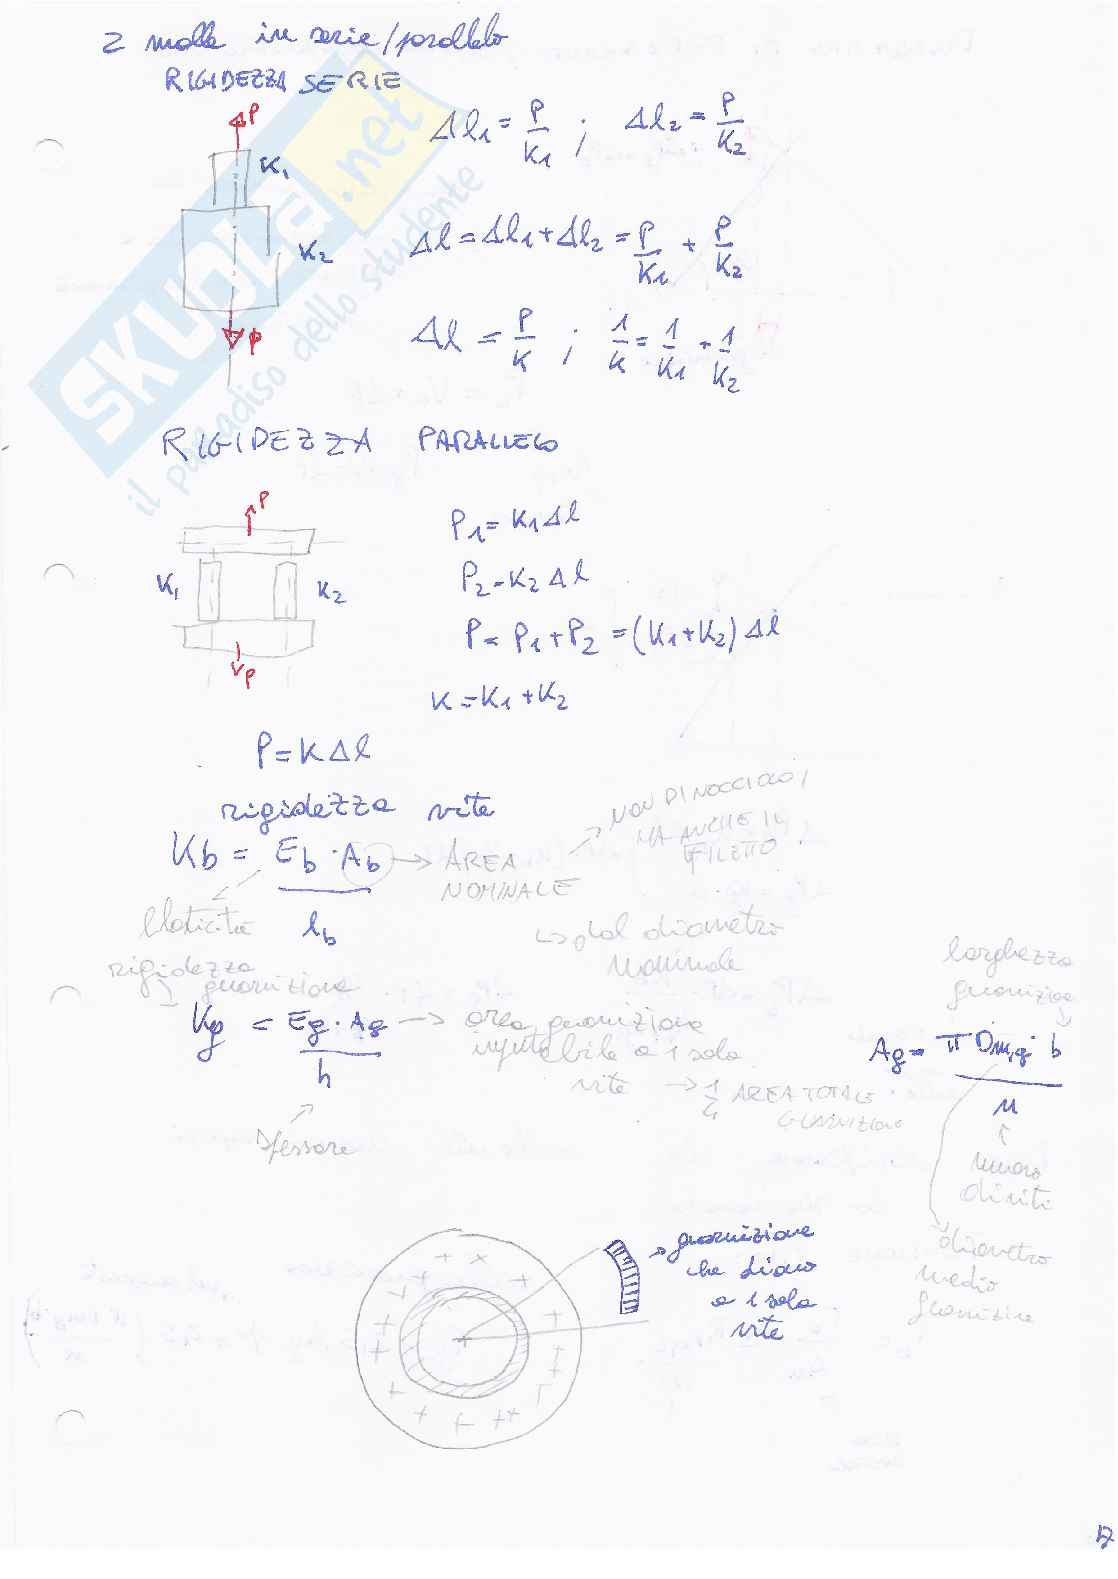 2 molle in serie/parallelo
RIGIDEZZA SERIE
P
K1
K2
P
Δl1 = P/K1 ; Δl2 = P/K2
Δl = Δl1 + Δl2 = P/K1 + P/K2
Δl = P/K ; 1/K = 1/K1 + 1/K2
SKUOLA.net
il paradiso dello studente
RIGIDEZZA PARALLELO
P
K1
K2
P
P1 = K1 Δl
P2 = K2 Δl
P = P1 + P2 = (K1 + K2) Δl
K = K1 + K2
P = K Δl
rigidezza vite
Kb = Eb · Ab / lb
→ AREA
NOMINALE
NON DI NOCCIOLO,
MA ANCHE IL
FILETTO
Elasticità
↳ dal diametro
nominale
rigidezza
guarnizione
Kg = Eg · Ag / h
→ area guarnizione
imputabile a 1 sola
vite → 1/4 AREA TOTALE
GUARNIZIONE
Spessore
larghezza
guarnizione
Ag = π Dm,g · b / n
numero
di viti
diametro
medio
guarnizione
guarnizione
che diamo
a 1 sola
vite
17